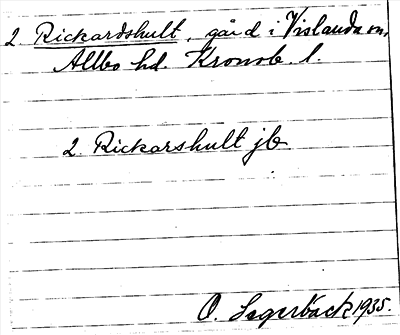 2. Rickardshult, gård i Vislanda sn,
Allbo hd. Kronob. l.
2. Rickarshult jb
O. Lagerbäck 1935.